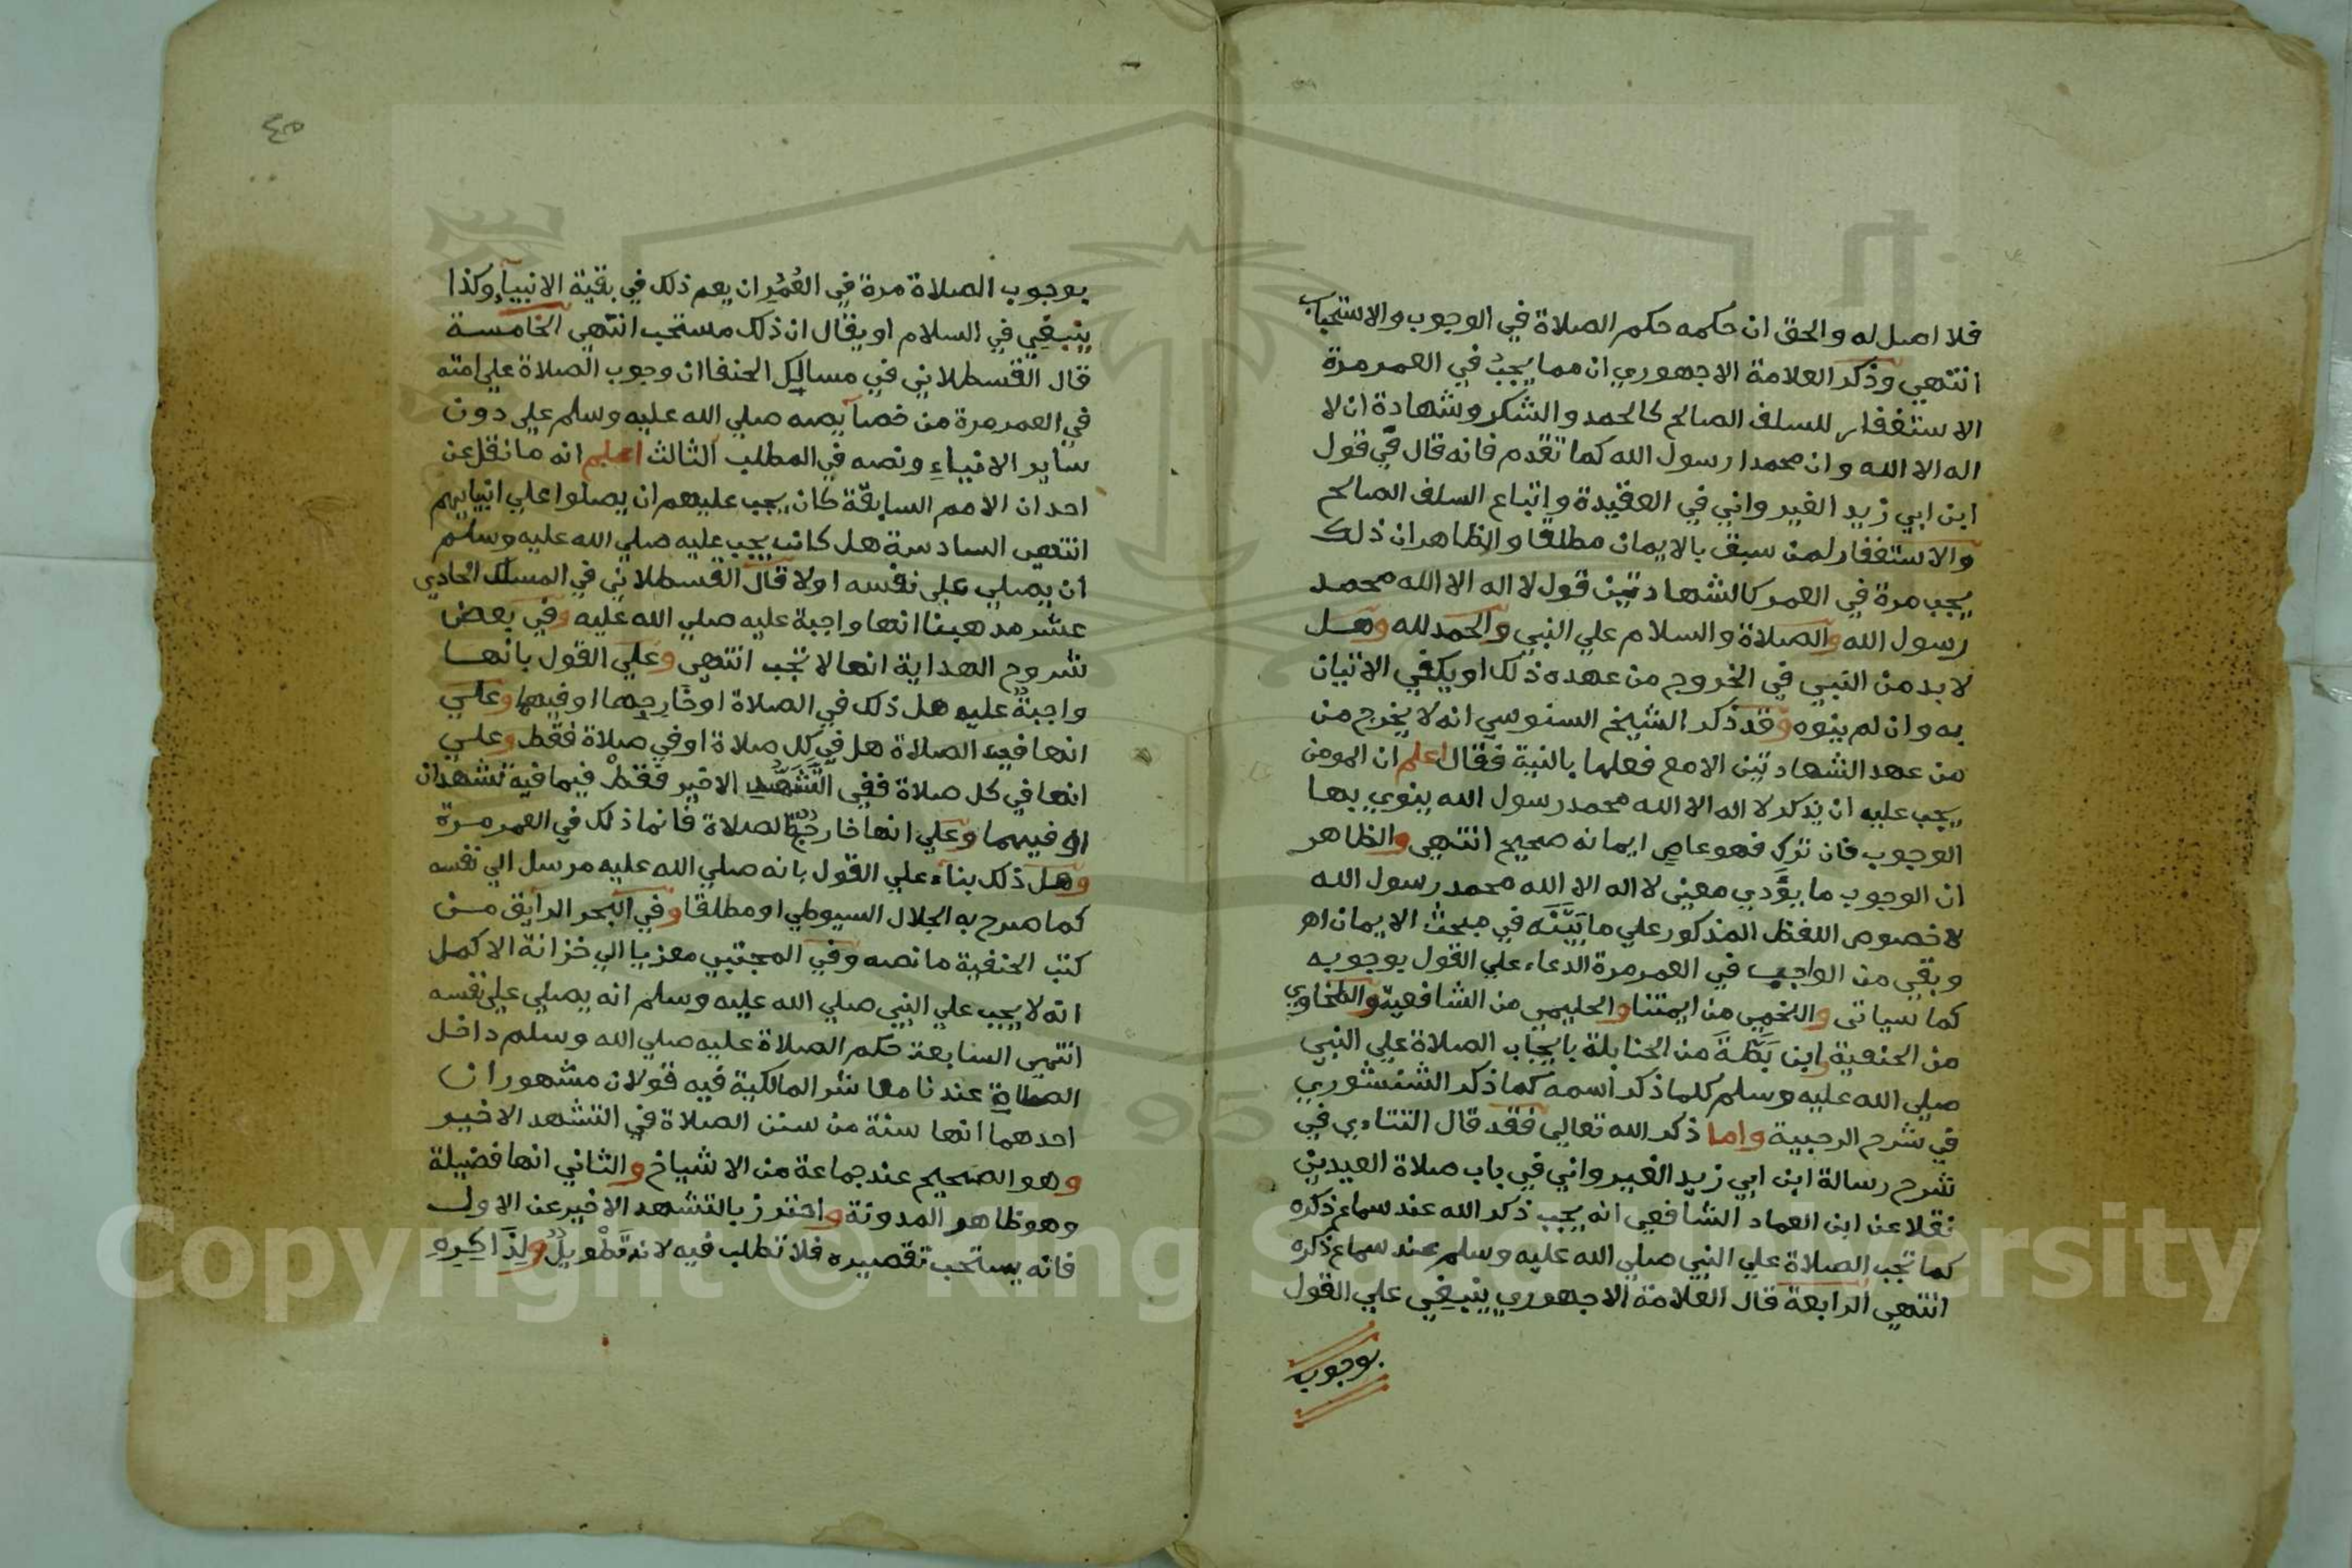 فلا اصل له والحق ان حكمه حكم الصلاة في الوجوب والاستحباب
انتهي وذكر العلامة الاجهوري ان مما يجب في العمر مرة
الاستغفار للسلف الصالح كالحمد والشكر وشهادة ان لا
اله الا الله وان محمدا رسول الله كما تقدم فانه قال في قول
ابن ابي زيد القيرواني في العقيدة واتباع السلف الصالح
والاستغفار لمن سبق بالايمان مطلقا والظاهر ان ذلك
يجب مرة في العمر كالشهادتين قول لا اله الا الله محمد
رسول الله والصلاة والسلام علي النبي والحمد لله وهل
لابد من النية في الخروج من عهدة ذلك او يكفي الاتيان
به وان لم ينوه وقد ذكر الشيخ السنوسي انه لا يخرج من
من عهد الشهادتين الا مع فعلها بالنية فقال اعلم ان المومن
يجب عليه ان يذكر لا اله الا الله محمد رسول الله ينوي بها
الوجوب فان ترك فهو عاص ايمانه صحيح انتهي والظاهر
ان الوجوب ما يؤدي معني لا اله الا الله محمد رسول الله
لا خصوص اللفظ المذكور علي ما بيّنه في مبحث الايمان اهر
وبقي من الواجب في العمر مرة الدعاء علي القول بوجوبه
كما سياتي واللخمي من ايمتنا والحليمي من الشافعية والطحاوي
من الحنفية وابن بَطّة من الحنابلة بايجاب الصلاة علي النبي
صلي الله عليه وسلم كلما ذكر اسمه كما ذكر الشنشوري
في شرح الرحبية واما ذكر الله تعالي فقد قال التتاءي في
شرح رسالة ابن ابي زيد القيرواني في باب صلاة العيدين
نقلا عن ابن العماد الشافعي انه يجب ذكر الله عند سماع ذكره
كما تجب الصلاة علي النبي صلي الله عليه وسلم عند سماع ذكره
انتهي الرابعة قال العلامة الاجهوري ينبغي علي القول
بوجوب
٤٥
بوجوب الصلاة مرة في العُمُرِ ان يعم ذلك في بقية الانبيآء وكذا
ينبغي في السلام او يقال ان ذلك مستحب انتهي الخامسة
قال القسطلاني في مسالك الحنفا ان وجوب الصلاة علي امته
في العمر مرة من خصآيصه صلي الله عليه وسلم علي دون
ساير الانبياء ونصه في المطلب الثالث اعلم انه ما نقل عن
احد ان الامم السابقة كان يجب عليهم ان يصلوا علي انبيايهم
انتهي السادسة هل كانت يجب عليه صلي الله عليه وسلم
ان يصلي علي نفسه او لا قال القسطلاني في المسلك الحادي
عشر مذهبنا انها واجبة عليه صلي الله عليه وفي بعض
شروح الهداية انها لا تجب انتهي وعلي القول بانها
واجبة عليه هل ذلك في الصلاة او خارجها او فيهما وعلي
انها في الصلاة هل في كل صلاة او في صلاة فقط وعلي
انها في كل صلاة ففي التَّشَهُّدِ الاخير فقط فيما فيه تشهدان
او فيهما وعلي انها خارج الصلاة فانما ذلك في العمر مرة
وهل ذلك بناء علي القول بانه صلي الله عليه مرسل الي نفسه
كما صرح به الجلال السيوطي او مطلقا وفي البحر الرايق من
كتب الحنفية ما نصه وفي المجتبي معزيا الي خزانة الاكمل
انه لا يجب علي النبي صلي الله عليه وسلم انه يصلي علي نفسه
انتهي السابعة حكم الصلاة عليه صلي الله وسلم داخل
الصلاة عندنا معاشر المالكية فيه قولان مشهوران
احدهما انها سنة من سنن الصلاة في التشهد الاخير
وهو الصحيح عند جماعة من الاشياخ والثاني انها فضيلة
وهو ظاهر المدونة واحترز بالتشهد الاخير عن الاول
فانه يستحب تقصيره فلا تطلب فيه لانه تَطْوِيلٌ ولِذَا كرِه
Copyright © King Saud University
95